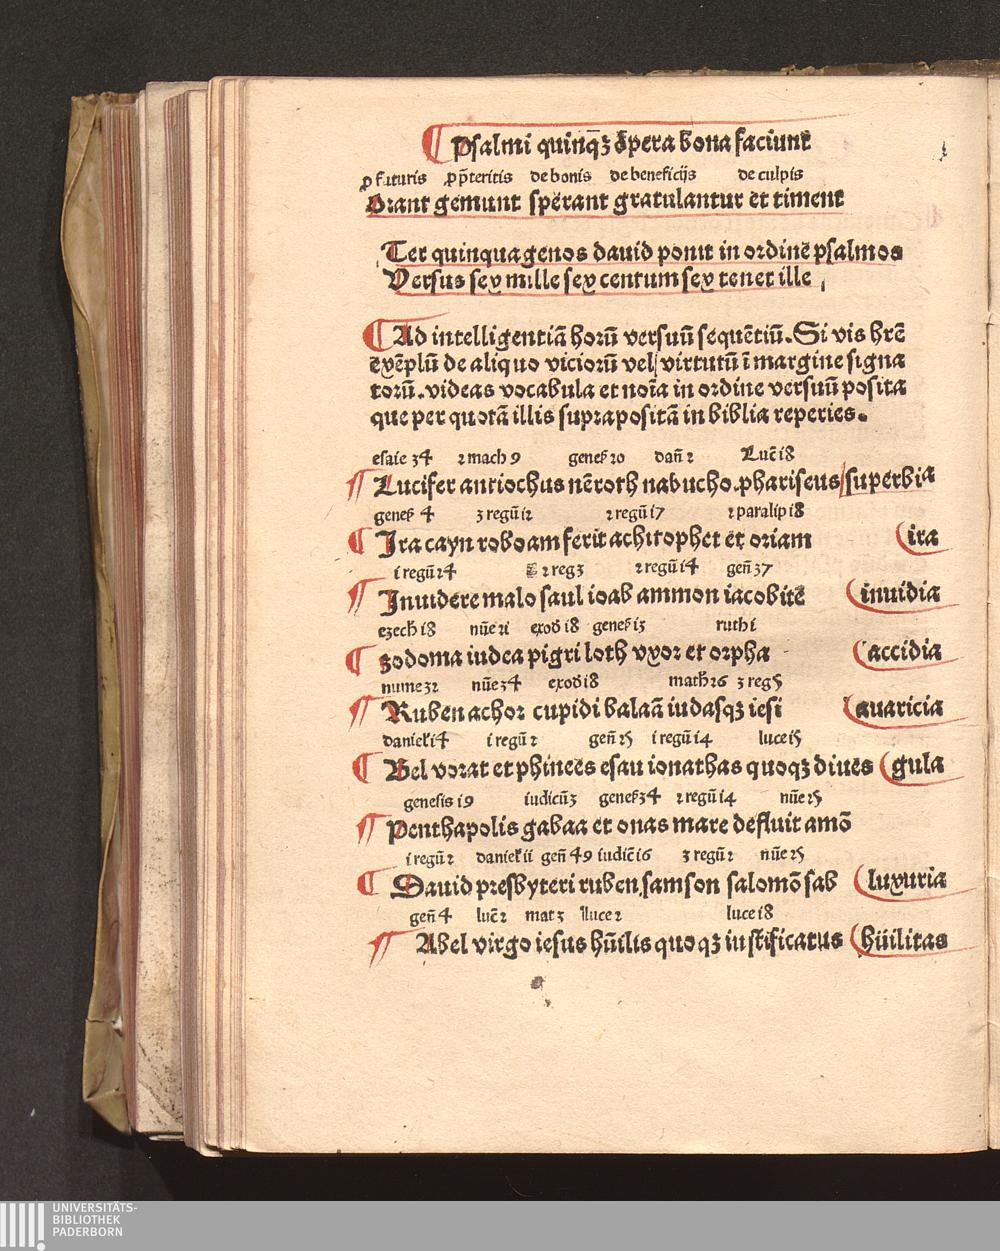 ¶ Psalmi quinqꝫ opera bona faciunt
ꝓ futuris ꝓ p̄teritis de bonis de beneficijs de culpis
Orant gemunt sperant gratulantur et timent
Ter quinquagenos dauid ponit in ordinē psalmos
Versus sex mille sex centum sex tenet ille
¶ Ad intelligentiā horū versuū sequētiū. Si vis hr̄e
exēplū de aliquo viciorū vel virtutū ī margine signa
torū. videas vocabula et noīa in ordine versuū posita
que per quotā illis suprapositā in biblia reperies.
esaie 34 2 mach 9 geneẜ 10 dañ 2 Lucē 18
¶ Lucifer antiochus nēroth nabucho. phariseus superbia
geneẜ 4 3 regū 12 2 regū 17 2 paralip 18
¶ Ira cayn roboam ferit achitophet et oziam ira
1 regū 24 2 reg 3 2 regū 14 gen̄ 37
¶ Inuidere malo saul ioab ammon iacobitē inuidia
ezech 18 nūe 21 exod 18 geneẜ 13 ruth 1
¶ zodoma iudea pigri loth vxor et orpha accidia
nume 32 nūe 34 exod 18 math 26 3 reg 5
¶ Ruben achor cupidi balaā iudasqꝫ iesi auaricia
daniel 14 1 regū 2 gen̄ 25 1 regū 14 luce 15
¶ Bel vorat et phinees esau ionathas quoqꝫ diues gula
genesis 19 iudicū 3 geneẜ 34 2 regū 14 nūe 25
¶ Penthapolis gabaa et onas mare defluit amō
1 regū 2 daniel 11 gen̄ 49 iudic̄ 16 3 regū 2 nūe 25
¶ Dauid presbyteri ruben. samson salomō sab luxuria
gen̄ 4 luc̄ 2 mat 3 luce 2 luce 18
¶ Abel virgo iesus hūilis quoqꝫ iustificatus hūilitas
UNIVERSITÄTS-
BIBLIOTHEK
PADERBORN